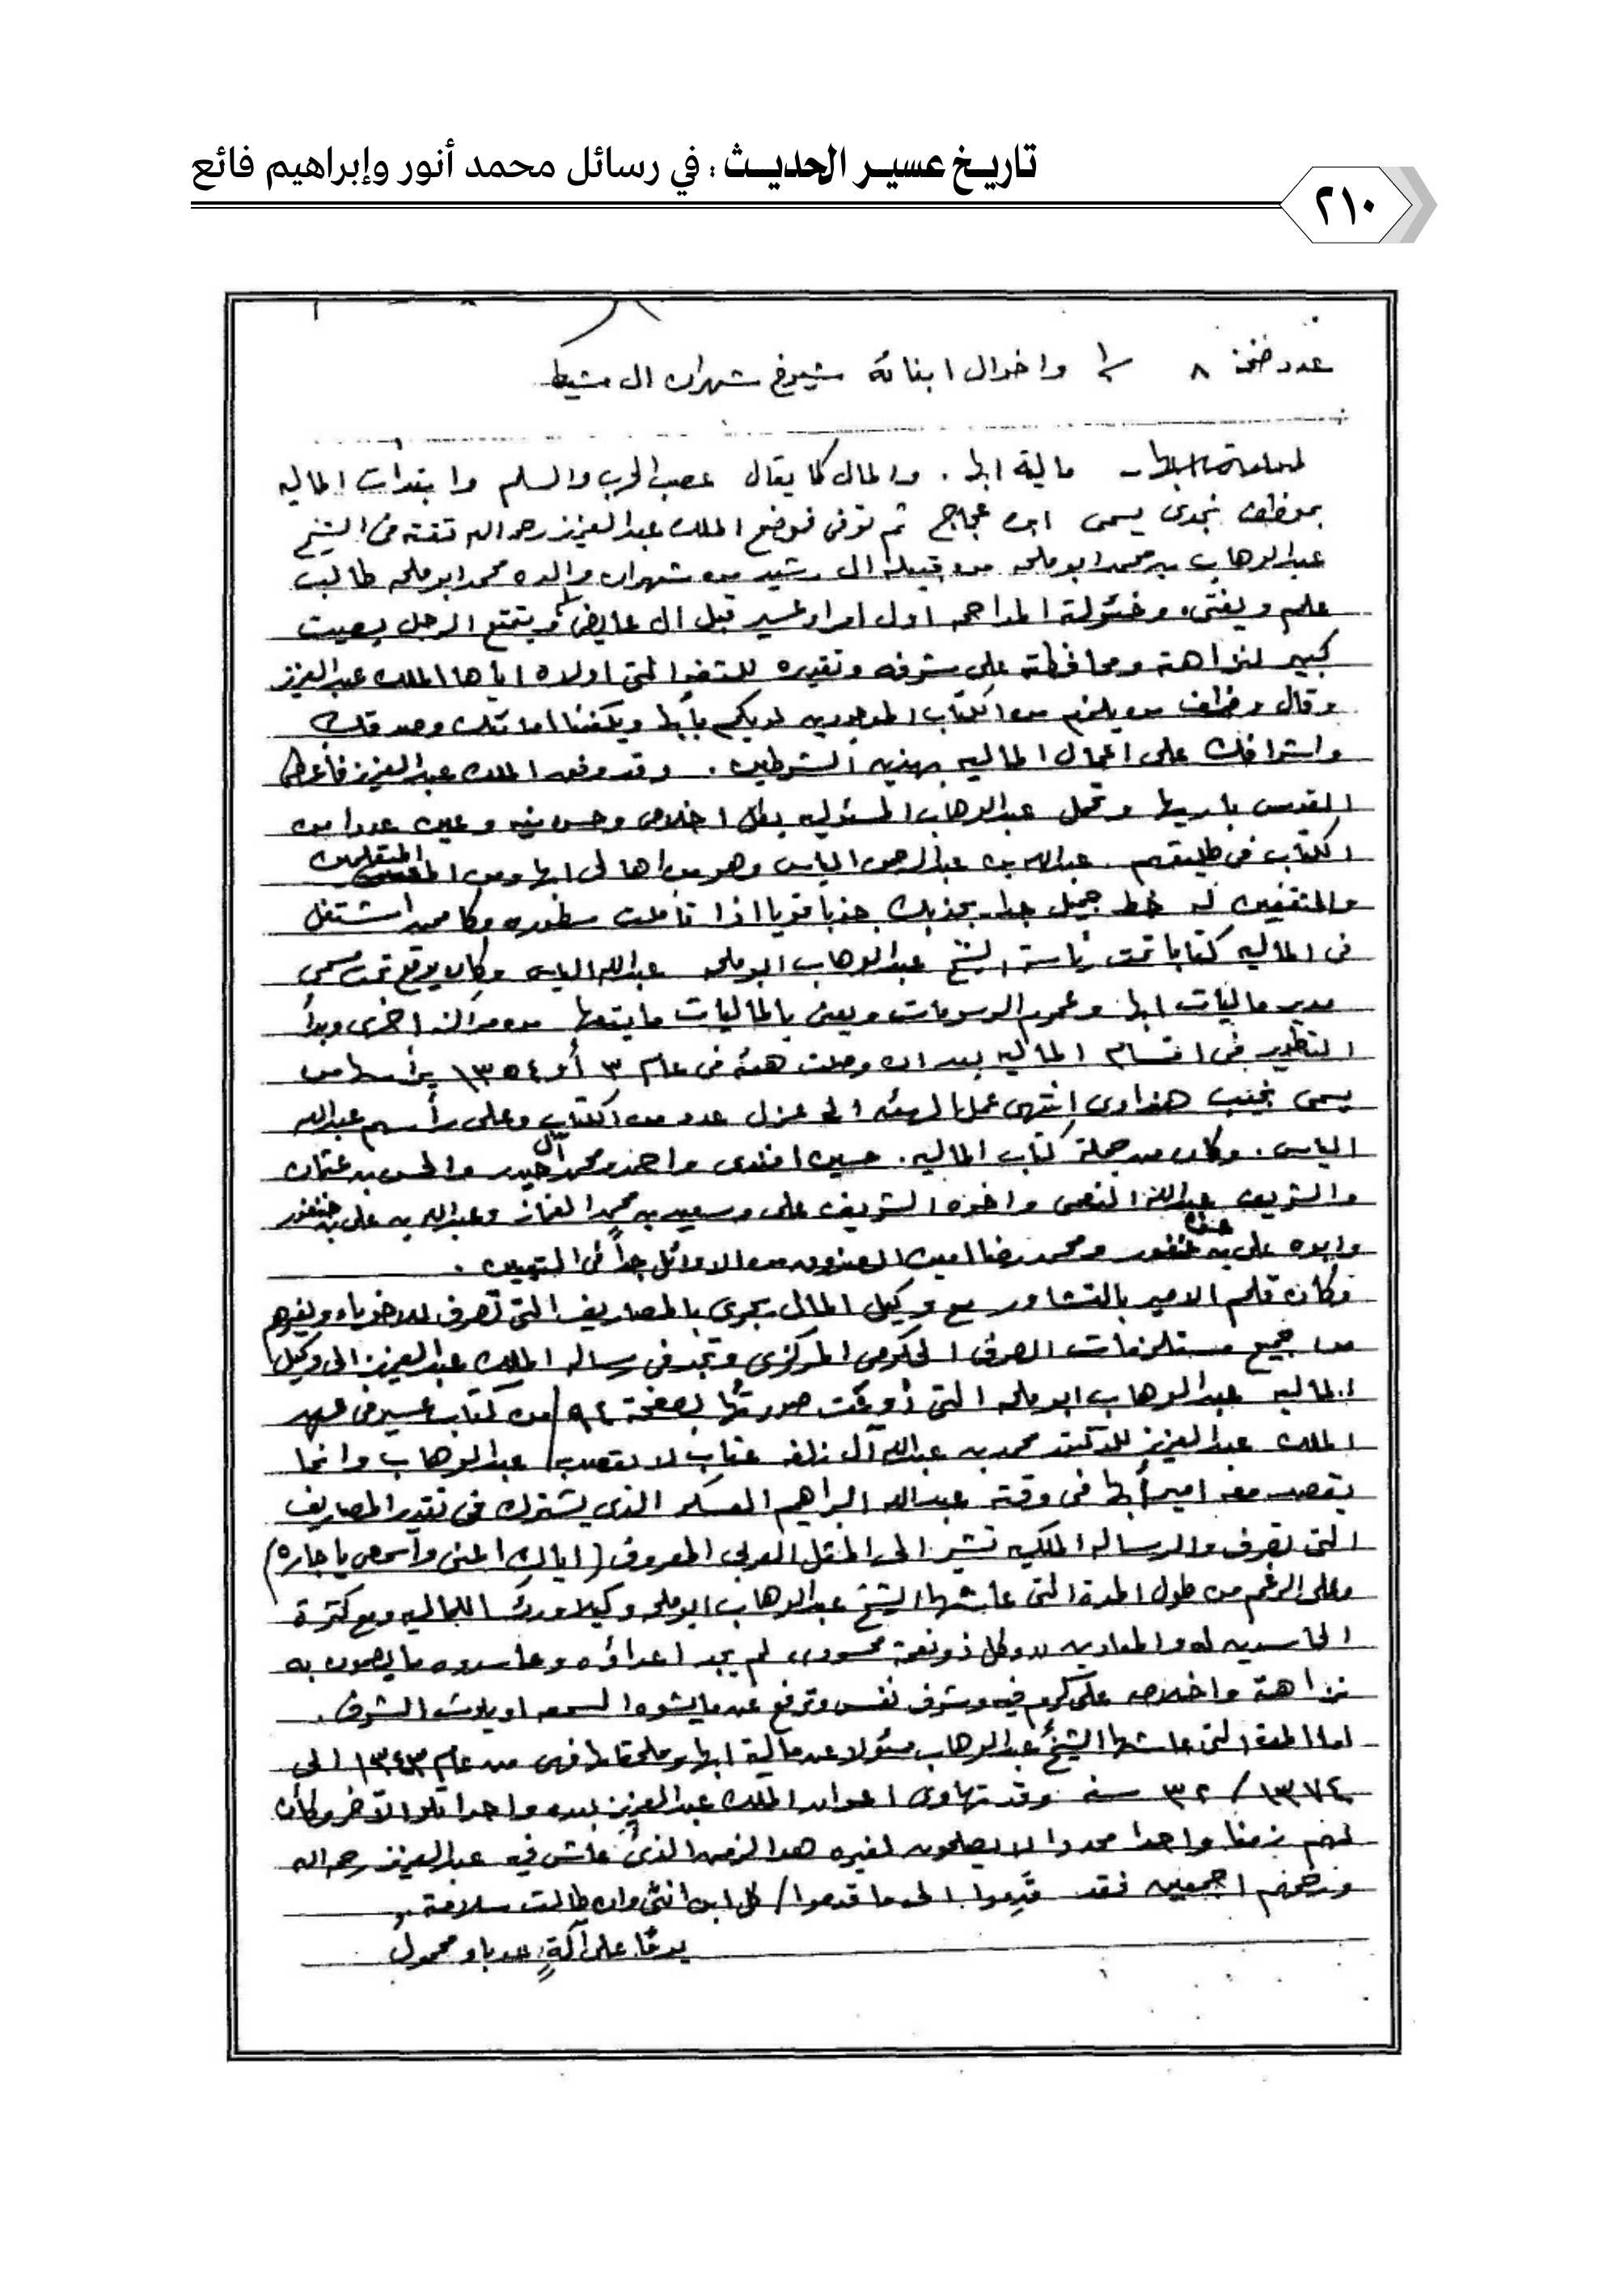 تاريخ عسير الحديث : في رسائل محمد أنور وإبراهيم فائع
٢١٠
عدد صفحة ٨ واخوال ابنائه شيوخ شهران ال مشيط
مالية ابها . والمال كما يقال عصب الحرب والسلم وابتدات الماليه
بموظف نجدى يسمى ابن عجاج ثم توفى فوضع الملك عبدالعزيز رحمه الله ثقته فى الشيخ
عبدالوهاب بن محمد ابو ملحه من قبيلة ال رشيد من شهران والده محمد ابو ملحه طالب
علم ويفتى اول امراء عسير قبل ال عايض ويتمتع الرجل بصيت
كبير لنزاهته ومحافظته على شرفه وتقديره للثقه التى اولاه اياها الملك عبدالعزيز
وقال وظف من يلزم من الكتاب الموجودين لديكم بأبها ويكفينا امانتك وصدقك
واشرافك على اعمال الماليه بهذين الشرطين . وقد وفق الملك عبدالعزيز فأعطى
القوس باريها وتحمل عبدالوهاب المسئوليه بكل اخلاص وحسن نيه وعين عددا من
الكتاب فى طليعتهم عبدالله بن عبدالرحمن الياس وهو من اهالى ابها ومن المتعلمين
والمثقفين له خط جميل جدا يجذبك جذبا قويا اذا تأملت سطوره وكان ممن اشتغل
فى الماليه كتابا تحت رئاسة الشيخ عبدالوهاب ابو ملحه عبدالله الياس وكان يوقع تحت مسمى
مدير ماليات ابها وعموم الرسومات ويعنى بالماليات ما يتبعها من مراكز اخرى وبدأ
التطوير فى اقسام الماليه بعد ان وصلت هيئة فى عام ٣ أو ١٣٥٤ يرأسها من
يسمى نجيب هنداوى إنتهى عمل الهيئه الى عزل عدد من الكتاب وعلى رأسهم عبدالله
الياس . وكان من جملة كتاب الماليه . حسين افندى واحمد ومحمد آل حيدر والحسن بن عثمان
والشريف عبدالله النعمى واخوه الشريف على وسعيد بن محمد الغماز وعبدالله بن على بن خنفور
وابوه على بن خنفور ومحمد رضا امين الصندوق من الاوائل جداً فى التعيين .
وكان قلم الامير بالتشاور مع وكيل المال يجرى بالمصاريف التى تصرف للاخوياء وغيرهم
من جميع مستلزمات الصرف الحكومى المركزى وتجد فى رساله الملك عبدالعزيز الى وكيل
الماليه عبدالوهاب ابو ملحه التى صورتها بصفحة من كتاب عسير فى عهد
الملك عبدالعزيز للدكتور محمد بن عبدالله آل زلفه عتاب لا يقصد عبدالوهاب وانما
يقصد معه امير أبها فى وقته عبدالله ابراهيم العسكر الذى يشترك فى تقدير المصاريف
التى تصرف والرساله الملكيه تشير الى المثل العربى المعروف (اياك اعنى واسمعى يا جاره)
وعلى الرغم من طول المدة التى عاشها الشيخ عبدالوهاب ابو ملحه وكيلا للماليه ومع كثرة
الحاسدين له والمعادين وكل ذو نعمة محسود، لم يجد اعداؤه وحاسدوه ما يصمون به
نزاهته واخلاصه على كرم فيه وشرف نفس وترفع عن ما يشوه السمعه او يلوث الشرف .
اما المدة التى عاشها الشيخ عبدالوهاب مسئولا عن مالية ابها وملحقاتها فهى من عام ١٣٤٣ الى
١٣٧٤ / ٣٢ سنه وقد تهاوى اعوان الملك عبدالعزيز بعده واحدا تلو الآخر وكأن
لهم زمنا واحدا محددا لا يصلحون لغيره هو الزمن الذى عاش فيه عبدالعزيز رحمه الله
ورحمهم اجمعين فقد قدموا الى ما قدموا / كل ابن انثى وان طالت سلامته
يومًا على آلةٍ حدباء محمول